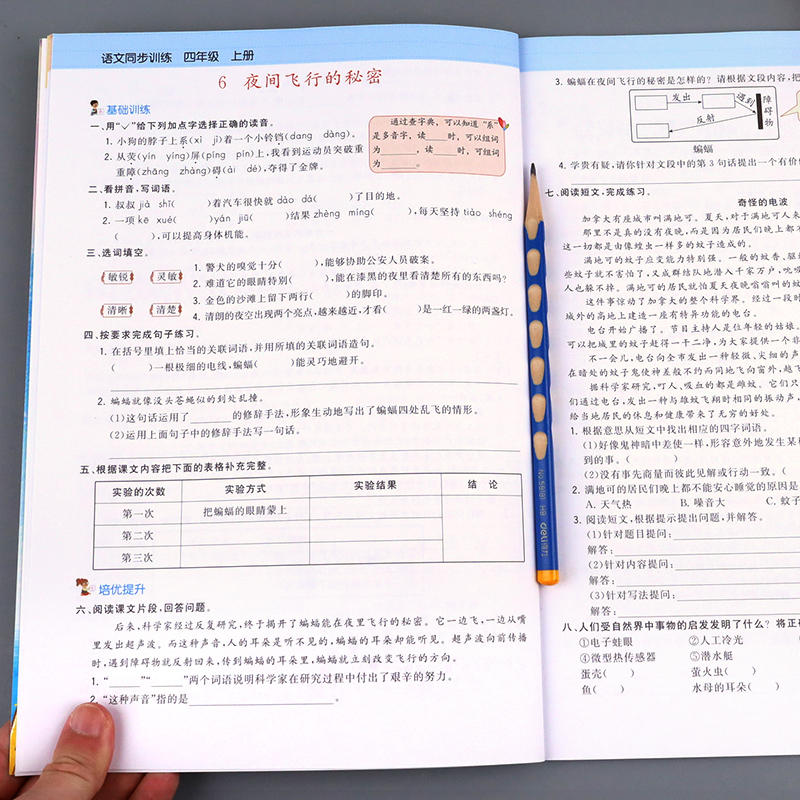 语文同步训练 四年级 上册
6 夜间飞行的秘密
基础训练
一、用“✓”给下列加点字选择正确的读音。
1. 小狗的脖子上系(xì jì)着一个小铃铛(dang dàng)。
2. 从荧(yín yíng)屏(píng pín)上,我看到运动员突破重
重障(zhāng zhàng)碍(ài dé),夺得了金牌。
通过查字典,可以知道“系”
是多音字,读____时,可以组词
为______,读____时,可组词
为______。
二、看拼音,写词语。
1. 叔叔jià shǐ( )着汽车很快就 dào dá( )了目的地。
2. 一项kē xué( )yán jiū( )结果 zhèng míng( ),每天坚持 tiào shéng
( ),可以提高身体机能。
三、选词填空。
敏锐 灵敏
清晰 清楚
1. 警犬的嗅觉十分( ),能够协助公安人员破案。
2. 难道它的眼睛特别( ),能在漆黑的夜里看清楚所有的东西吗?
3. 金色的沙滩上留下两行( )的脚印。
4. 清朗的夜空出现两个亮点,越来越近,才看( )是一红一绿的两盏灯。
四、按要求完成句子练习。
1. 在括号里填上恰当的关联词语,并用所填的关联词语造句。
( )一根极细的电线,蝙蝠( )能灵巧地避开。
2. 蝙蝠就像没头苍蝇似的到处乱撞。
(1)这句话运用了______的修辞手法,形象生动地写出了蝙蝠四处乱飞的情形。
(2)运用上面句子中的修辞手法写一句话。
五、根据课文内容把下面的表格补充完整。
实验的次数 实验方式 实验结果 结 论
第一次 把蝙蝠的眼睛蒙上
第二次
第三次
培优提升
六、阅读课文片段,回答问题。
后来,科学家经过反复研究,终于揭开了蝙蝠能在夜里飞行的秘密。它一边飞,一边从嘴
里发出超声波。而这种声音,人的耳朵是听不见的,蝙蝠的耳朵却能听见。超声波向前传播
时,遇到障碍物就反射回来,传到蝙蝠的耳朵里,蝙蝠就立刻改变飞行的方向。
1. “______”“______”两个词语说明科学家在研究过程中付出了艰辛的努力。
2. “这种声音”指的是____________________。
3. 蝙蝠在夜间飞行的秘密是怎样的?请根据文段内容,把
发出 遇到 障碍物
反射
蝙蝠
4. 学贵有疑,请你针对文段中的第 3 句话提出一个有价值
七、阅读短文,完成练习。
奇怪的电波
加拿大有座城市叫满地可。夏天,对于满地可人来
那里不是真的没有夜晚,而是因为居民们晚上都不
这一切都是由像蝗虫一样多的蚊子造成的。
满地可的蚊子应变能力特别强。一般的蚊香、驱蚊
些蚊子就不害怕了,又成群结队地潜入千家万户,吮吸
人也躲不掉。满地可的居民就怕夏天夜晚嗡嗡叫的蚊
这件事惊动了加拿大的整个科学界。经过一段时
城外的高地上建造一座有特异功能的电台。
电台开始广播了。节目主持人是位年轻的姑娘。
可以把城里的蚊子赶得一干二净,为大家提供一个非
不一会儿,电台向全市发出一种轻微、尖细的声
在暗处的蚊子鬼使神差般不约而同地飞向窗外,越飞
据科学家研究,叮人、吸血的都是雌蚊。它们只
们通过电台,发出一种与雄蚊飞翔时相同的振动声,
给当地居民的休息和健康带来了无穷的好处。
1. 根据意思从短文中找出相应的四字词语。
(1)好像鬼神暗中差使一样,形容意外地发生某
到的事。( )
(2)没有事先商量而彼此见解或行动一致。(
2. 满地可的居民们晚上都不能安心睡觉的原因是
A. 天气热 B. 噪音大 C. 蚊子
3. 阅读短文,根据提示提出问题,并解答。
(1)针对题目提问:
解答:
(2)针对内容提问:
解答:
(3)针对写法提问:
解答:
八、人们受自然界中事物的启发发明了什么?将正确
①电子蛙眼 ②人工冷光
④微型热传感器 ⑤潜水艇
蛋壳( ) 萤火虫( )
鱼( ) 水母的耳朵( )
No.58191 HB deli得力